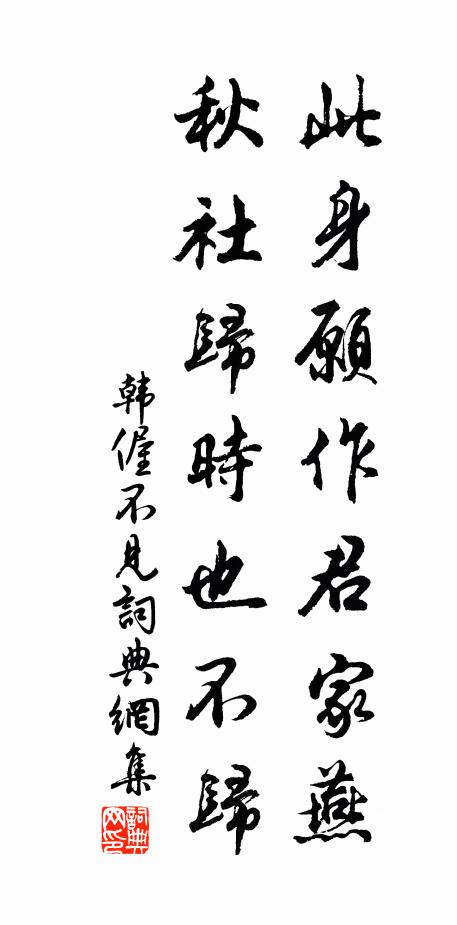 此身願作君家燕
秋社歸時也不歸
韩偓不見詞典網集
詞典網印